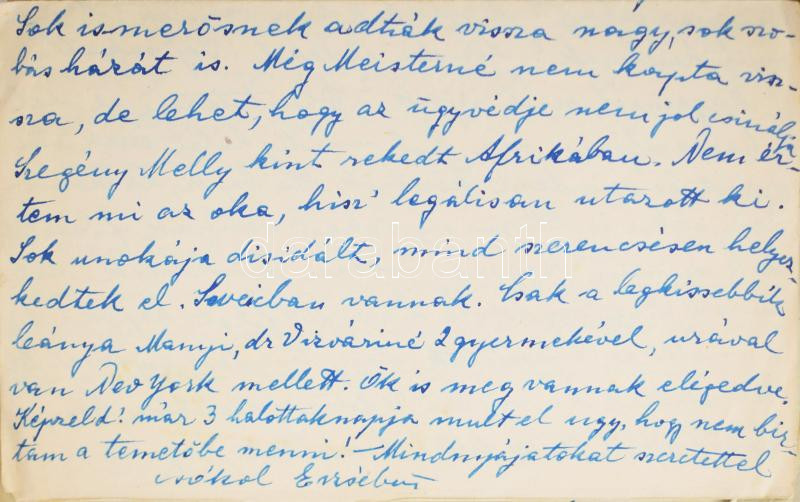 Sok ismerősnek adták vissza nagy, sok szo-
bás házát is. Még Meisterné nem kapta visz-
sza, de lehet, hogy az ügyvédje nem jol csinálja
Szegény Melly kint rekedt Afrikában. Nem ér-
tem mi az oka, hisz' legálisan utazott ki.
Sok unokája disidált, mind szerencsésen helyez-
kedtek el. Sveicban vannak. Csak a legkissebbik
leánya Manyi, dr Vizváriné 2 gyermekével, urával
van New York mellett. Ők is meg vannak elégedve.
Képzeld! már 3 halottaknapja mult el ugy, hogy nem bir-
tam a temetőbe menni! - Mindnyájatokat szeretettel
csókol Erzsébet
darabanth